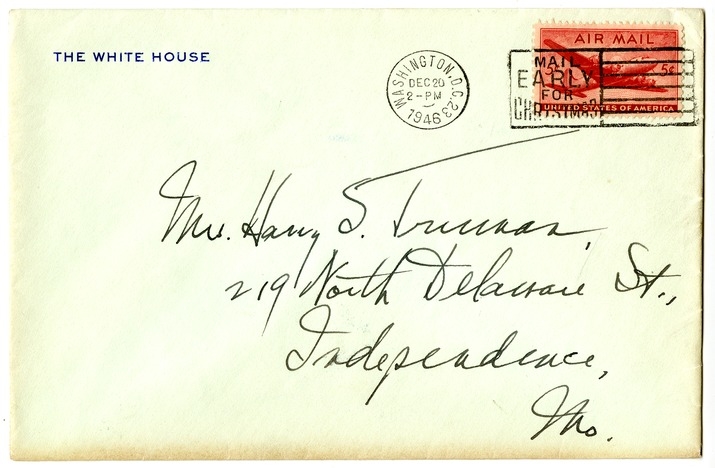 THE WHITE HOUSE
WASHINGTON, D.C. 23
DEC 20
2-PM
1946
MAIL
EARLY
FOR
CHRISTMAS
AIR MAIL
5¢ 5¢
UNITED STATES OF AMERICA
Mrs. Harry S. Truman,
219 North Delaware St.,
Independence,
Mo.